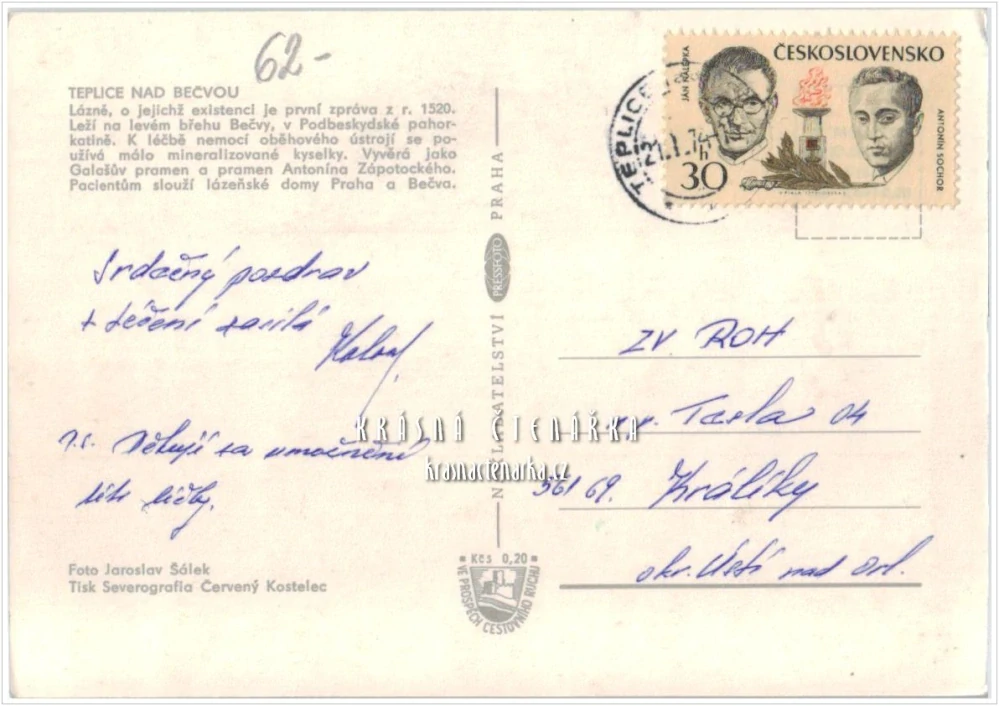 62-
TEPLICE NAD BEČVOU
Lázně, o jejichž existenci je první zpráva z r. 1520.
Leží na levém břehu Bečvy, v Podbeskydské pahor-
katině. K léčbě nemocí oběhového ústrojí se po-
užívá málo mineralizované kyselky. Vyvěrá jako
Galašův pramen a pramen Antonína Zápotockého.
Pacientům slouží lázeňské domy Praha a Bečva.
Srdečný pozdrav
z léčení zasílá
P.S. Děkuji za umožnění
této léčby.
Foto Jaroslav Šálek
Tisk Severografia Červený Kostelec
NAKLADATELSTVÍ PRESSFOTO PRAHA
Kčs 0,20
VE PROSPĚCH CESTOVNÍHO RUCHU
KRÁSNÁ ČTENÁŘKA
krasnactenarka.cz
TEPLICE
21.1.74
ČESKOSLOVENSKO
JAN NÁLEPKA
ANTONÍN SOCHOR
30 h
ZV ROH
n.p. Tesla 04
561 69. Králíky
okr. Ústí nad Orl.